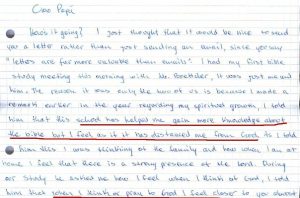 Ciao Papá
How's it going? I just thought that it would be nice to send
you a letter rather than just sending an email, since you say
"letters are far more valuable than emails". I had my first bible
study meeting this morning with Mr. it was just me and
him. The reason it was only the two of us is because I made a
remark earlier in the year regarding my spiritual growth, I told
him that this school has helped me gain more knowledge about
the bible but I feel as if it has distanced me from God. As I told
him this I was thinking of the family and how when I am at
home, I feel that there is a strong presence of the Lord. During
our study he asked me how I feel when I think of God, I told
him that when I think or pray to God I feel closer to you almost